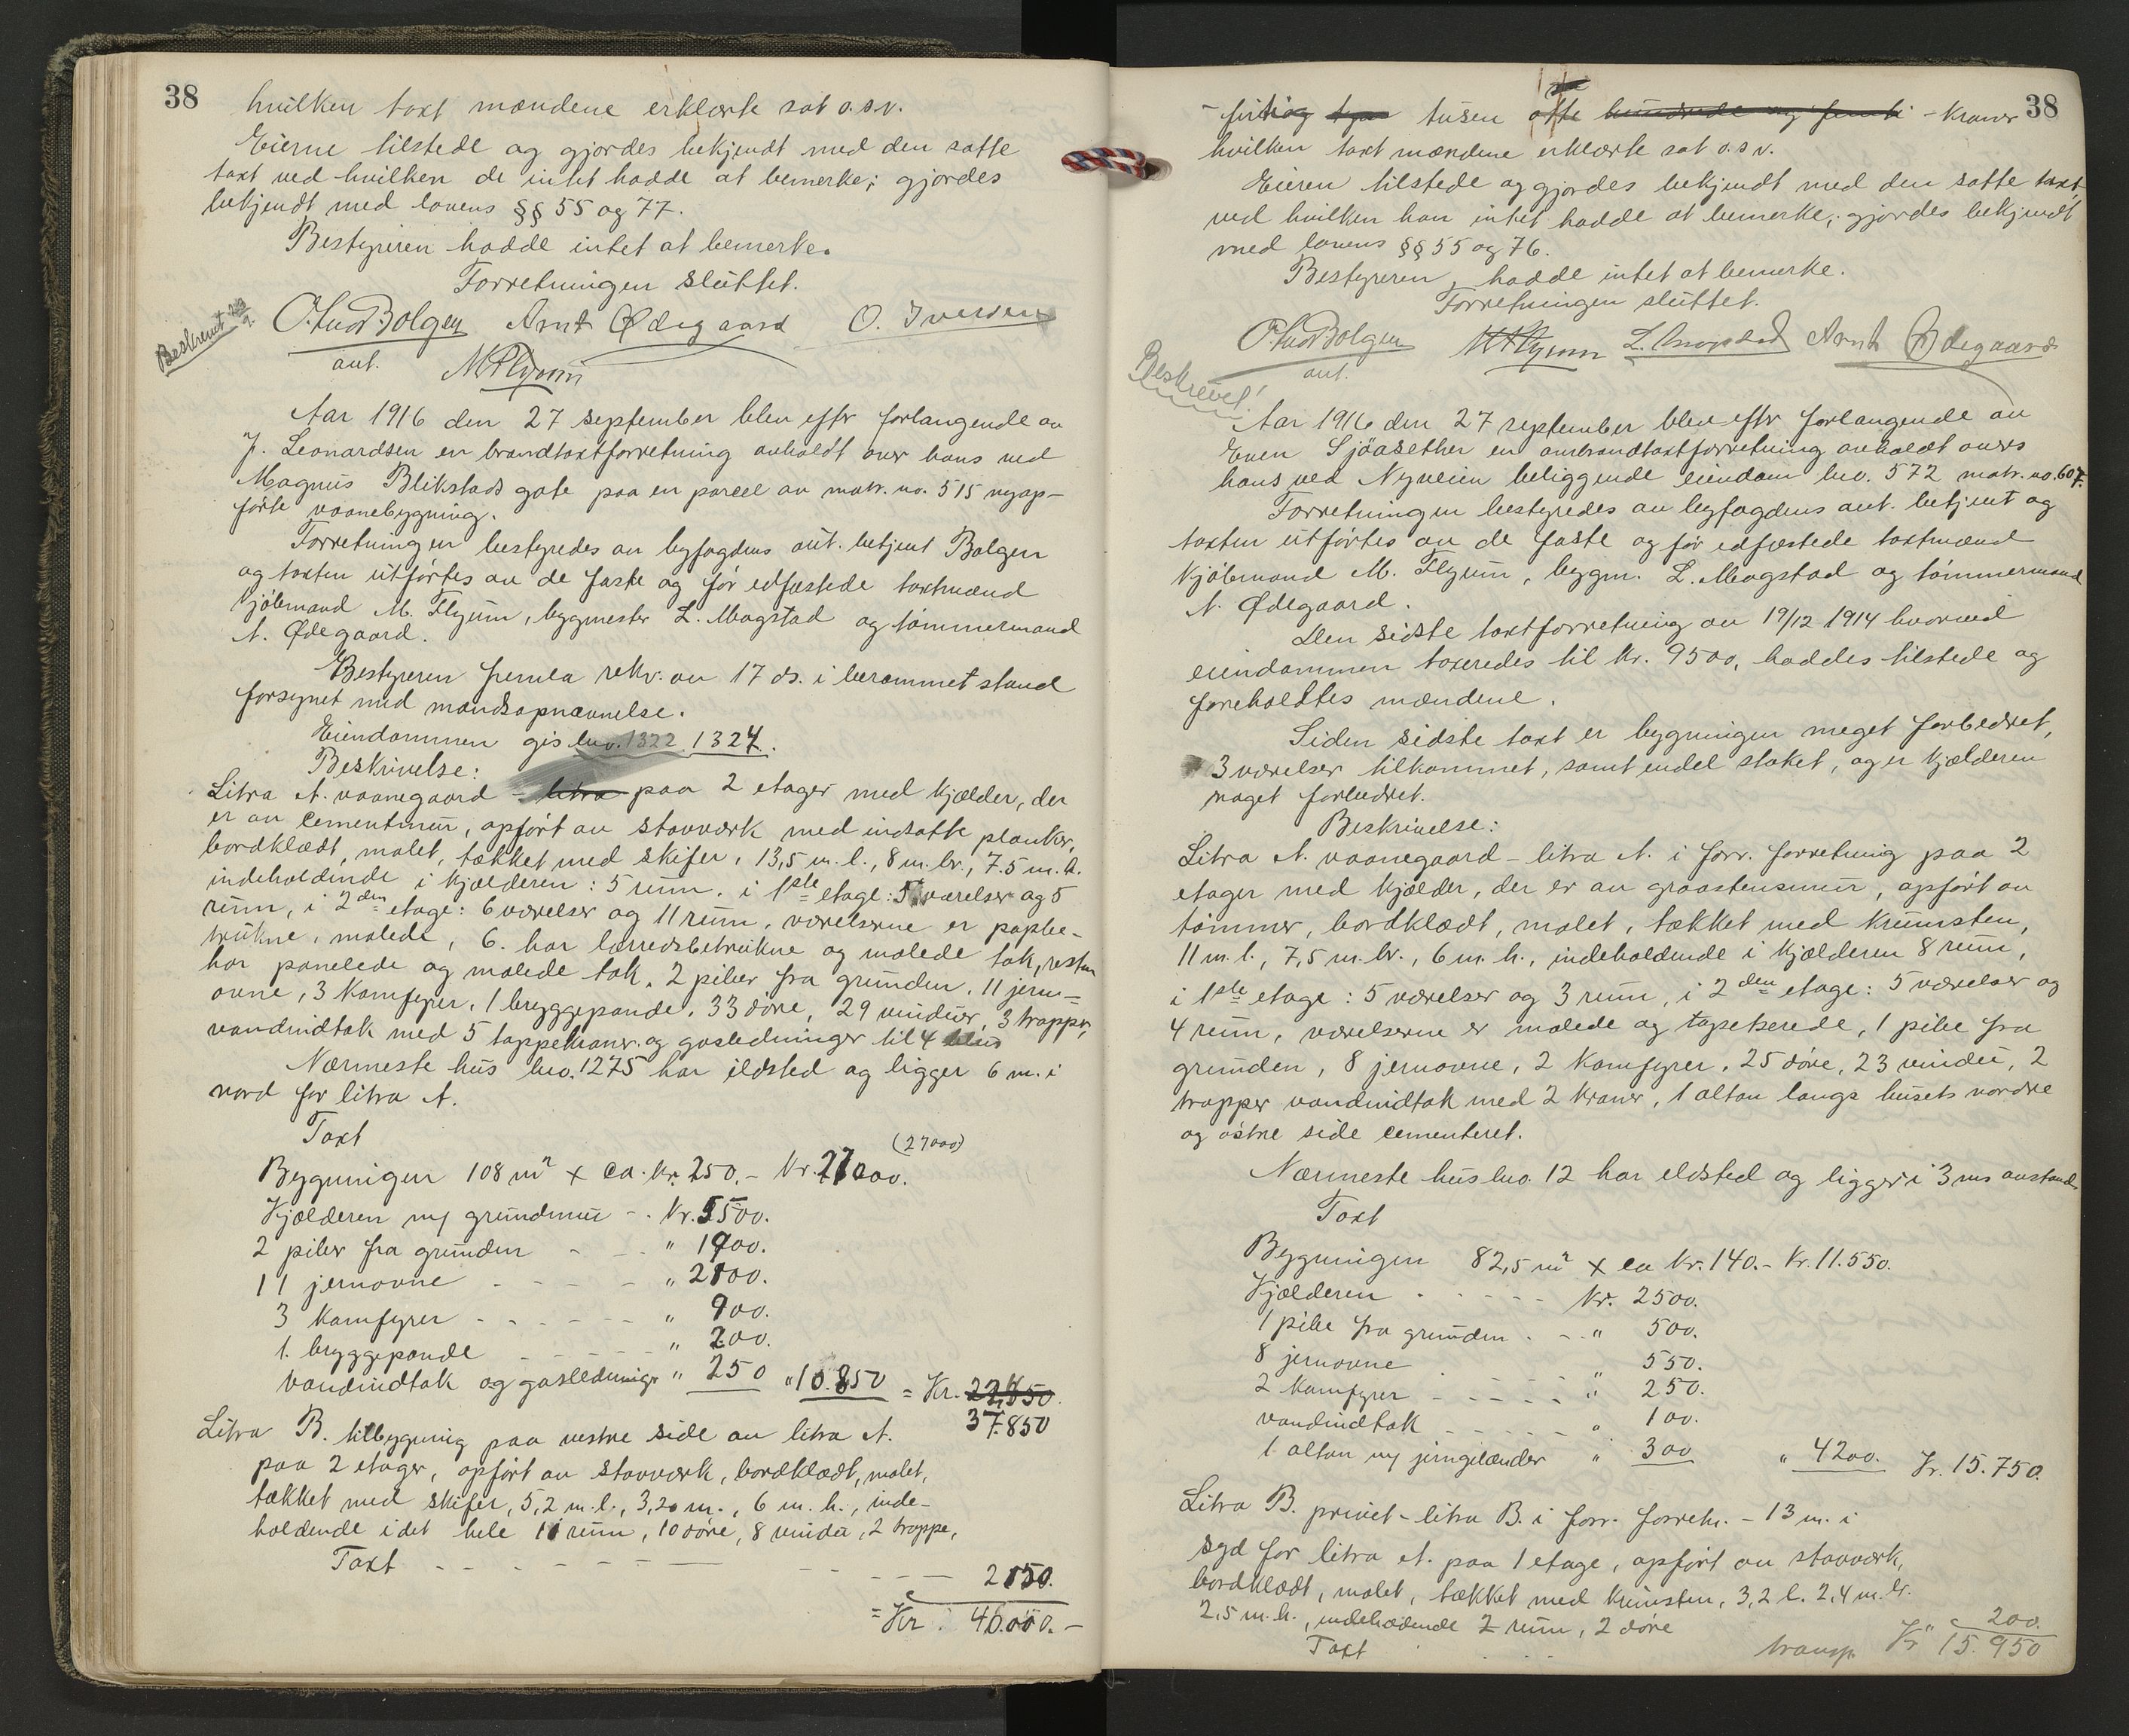 38
hvilken taxt mændene erklærte sat o.s.v.
Eierne tilstede og gjordes bekjendt med den satte
taxt ved hvilken de intet hadde at bemerke; gjordes
bekjendt med lovens §§ 55 og 77.
Bestyreren hadde intet at bemerke.
Forretningen sluttet.
Beskrevet
Bolgen Arnt Ødegaard O. Iversen
aut. M Flyum
Aar 1916 den 27 september blev efter forlangende av
J. Leonardsen en brandtaxtforretning avholdt over hans ved
Magnus Blikstads gate paa en parcel av matr. no. 515 nyop-
førte vaanebygning.
Forretningen bestyredes av byfogdens aut. betjent Bolgen
og taxten utførtes av de faste og før edfæstede taxtmænd
kjøbmand M. Flyum, bygmester L. Magstad og tømmermand
A. Ødegaard.
Bestyreren fremla rekv. av 17 ds. i berammet stand
forsynet med mandsopnævnelse.
Eiendommen gis bno. 1322 1324.
Beskrivelse:
Litra A. vaanegaard - litra paa 2 etager med kjælder, der
er av cementmur, opført av stavværk med indsatte planker,
bordklædt, malet, tækket med skifer, 13,5 m. l., 8 m. br., 7.5 m. h.
indeholdende i kjælderen: 5 rum. i 1ste etage: 5 værelser og 5
rum, i 2den etage: 6 værelser og 11 rum, værelserne er papbe-
trukne, malede, 6. har lærredsbetrukne og malede tak, resten
har panelede og malede tak. 2 piber fra grunden. 11 jern-
ovne, 3 komfyrer, 1 bryggepande. 33 døre, 29 vinduer, 3 trapper,
vandindtak med 5 tappekraner og gasledninger til 4 blus
Nærmeste hus bno. 1275 har ildsted og ligger 6 m. i
nord for litra A.
Taxt
(27000)
Bygningen 108 m² x ca. kr. 250.- Kr. 27000.
Kjælderen m/ grundmur - . Kr. 5500.
2 piber fra grunden - - - " 1900.
11 jernovne - - - - " 2100.
3 komfyrer - - - - - - " 900.
1. bryggepande - - - - " 200.
vandindtak og gasledninger " 250 " 10.850 = Kr. 22,850.
37.850
Litra B. tilbygning paa vestre side av litra A.
paa 2 etager, opført av stavværk, bordklædt, malet,
tækket med skifer, 5,2 m. l., 3,20 m., 6 m. h., inde-
holdende i det hele 11 rum, 10 døre, 8 vinduer, 2 trappe,
Taxt - - - - - - - - - - - - 2150.
= Kr. 40.000.-
38
- firtiog tusen otte hundrede og femti - kroner
hvilken taxt mændene erklærte sat o.s.v.
Eieren tilstede og gjordes bekjendt med den satte taxt
ved hvilken han intet hadde at bemerke; gjordes bekjendt
med lovens §§ 55 og 76.
Bestyreren, hadde intet at bemerke.
Forretningen sluttet.
Bolgen M Flyum L. Magstad Arnt Ødegaard
aut.
Beskrevet!
Aar 1916 den 27 september blev efter forlangende av
Even Sjöasether en ombrandtaxtforretning avholdt over
hans ved Nyveien beliggende eiendom bno. 572 matr. no. 607.
Forretningen bestyredes av byfogdens aut. betjent og
taxten utførtes av de faste og før edfæstede taxtmænd
kjøbmand M. Flyum, bygm. L. Magstad og tømmermand
A. Ødegaard.
Den sidste taxtforretning av 19/12 1914 hvorved
eiendommen taxeredes til kr. 9500, haddes tilstede og
foreholdtes mændene.
Siden sidste taxt er bygningen meget forbedret,
3 værelser tilkommet, samt endel staket, og er kjælderen
noget forbedret.
Beskrivelse:
Litra A. vaanegaard - litra A. i forr. forretning paa 2
etager med kjælder, der er av graastensmur, opført av
tømmer, bordklædt, malet, tækket med krumsten,
11 m. l., 7,5 m. br., 6 m. h., indeholdende i kjælderen 8 rum,
i 1ste etage: 5 værelser og 3 rum, i 2den etage: 5 værelser og
4 rum, værelserne er malede og tapetserede, 1 pibe fra
grunden, 8 jernovne, 2 komfyrer, 25 døre, 23 vinduer, 2
trapper vandindtak med 2 kraner, 1 altan langs husets nordre
og østre side cementeret.
Nærmeste hus bno. 12 har ildsted og ligger i 3 ms avstand.
Taxt
Bygningen 82,5 m² x ca kr. 140.- Kr. 11.550.
Kjælderen . - - - - Kr. 2500.
1 pibe fra grunden . - - " 500.
8 jernovne " 550.
2 komfyrer - - - - - " 250.
vandindtak - - - - - " 100.
1 altan m/ jerngelænder " 300 " 4200. Kr. 15.750.
Litra B. privet - litra B. i forr. forretn. - 13 m. i
syd for litra A. paa 1 etage, opført av stavværk,
bordklædt, malet, tækket med krumsten, 3,2 l. 2,4 m. br.
2,5 m. h., indeholdende 2 rum, 2 døre
Taxt 200.
transp. Kr 15.950